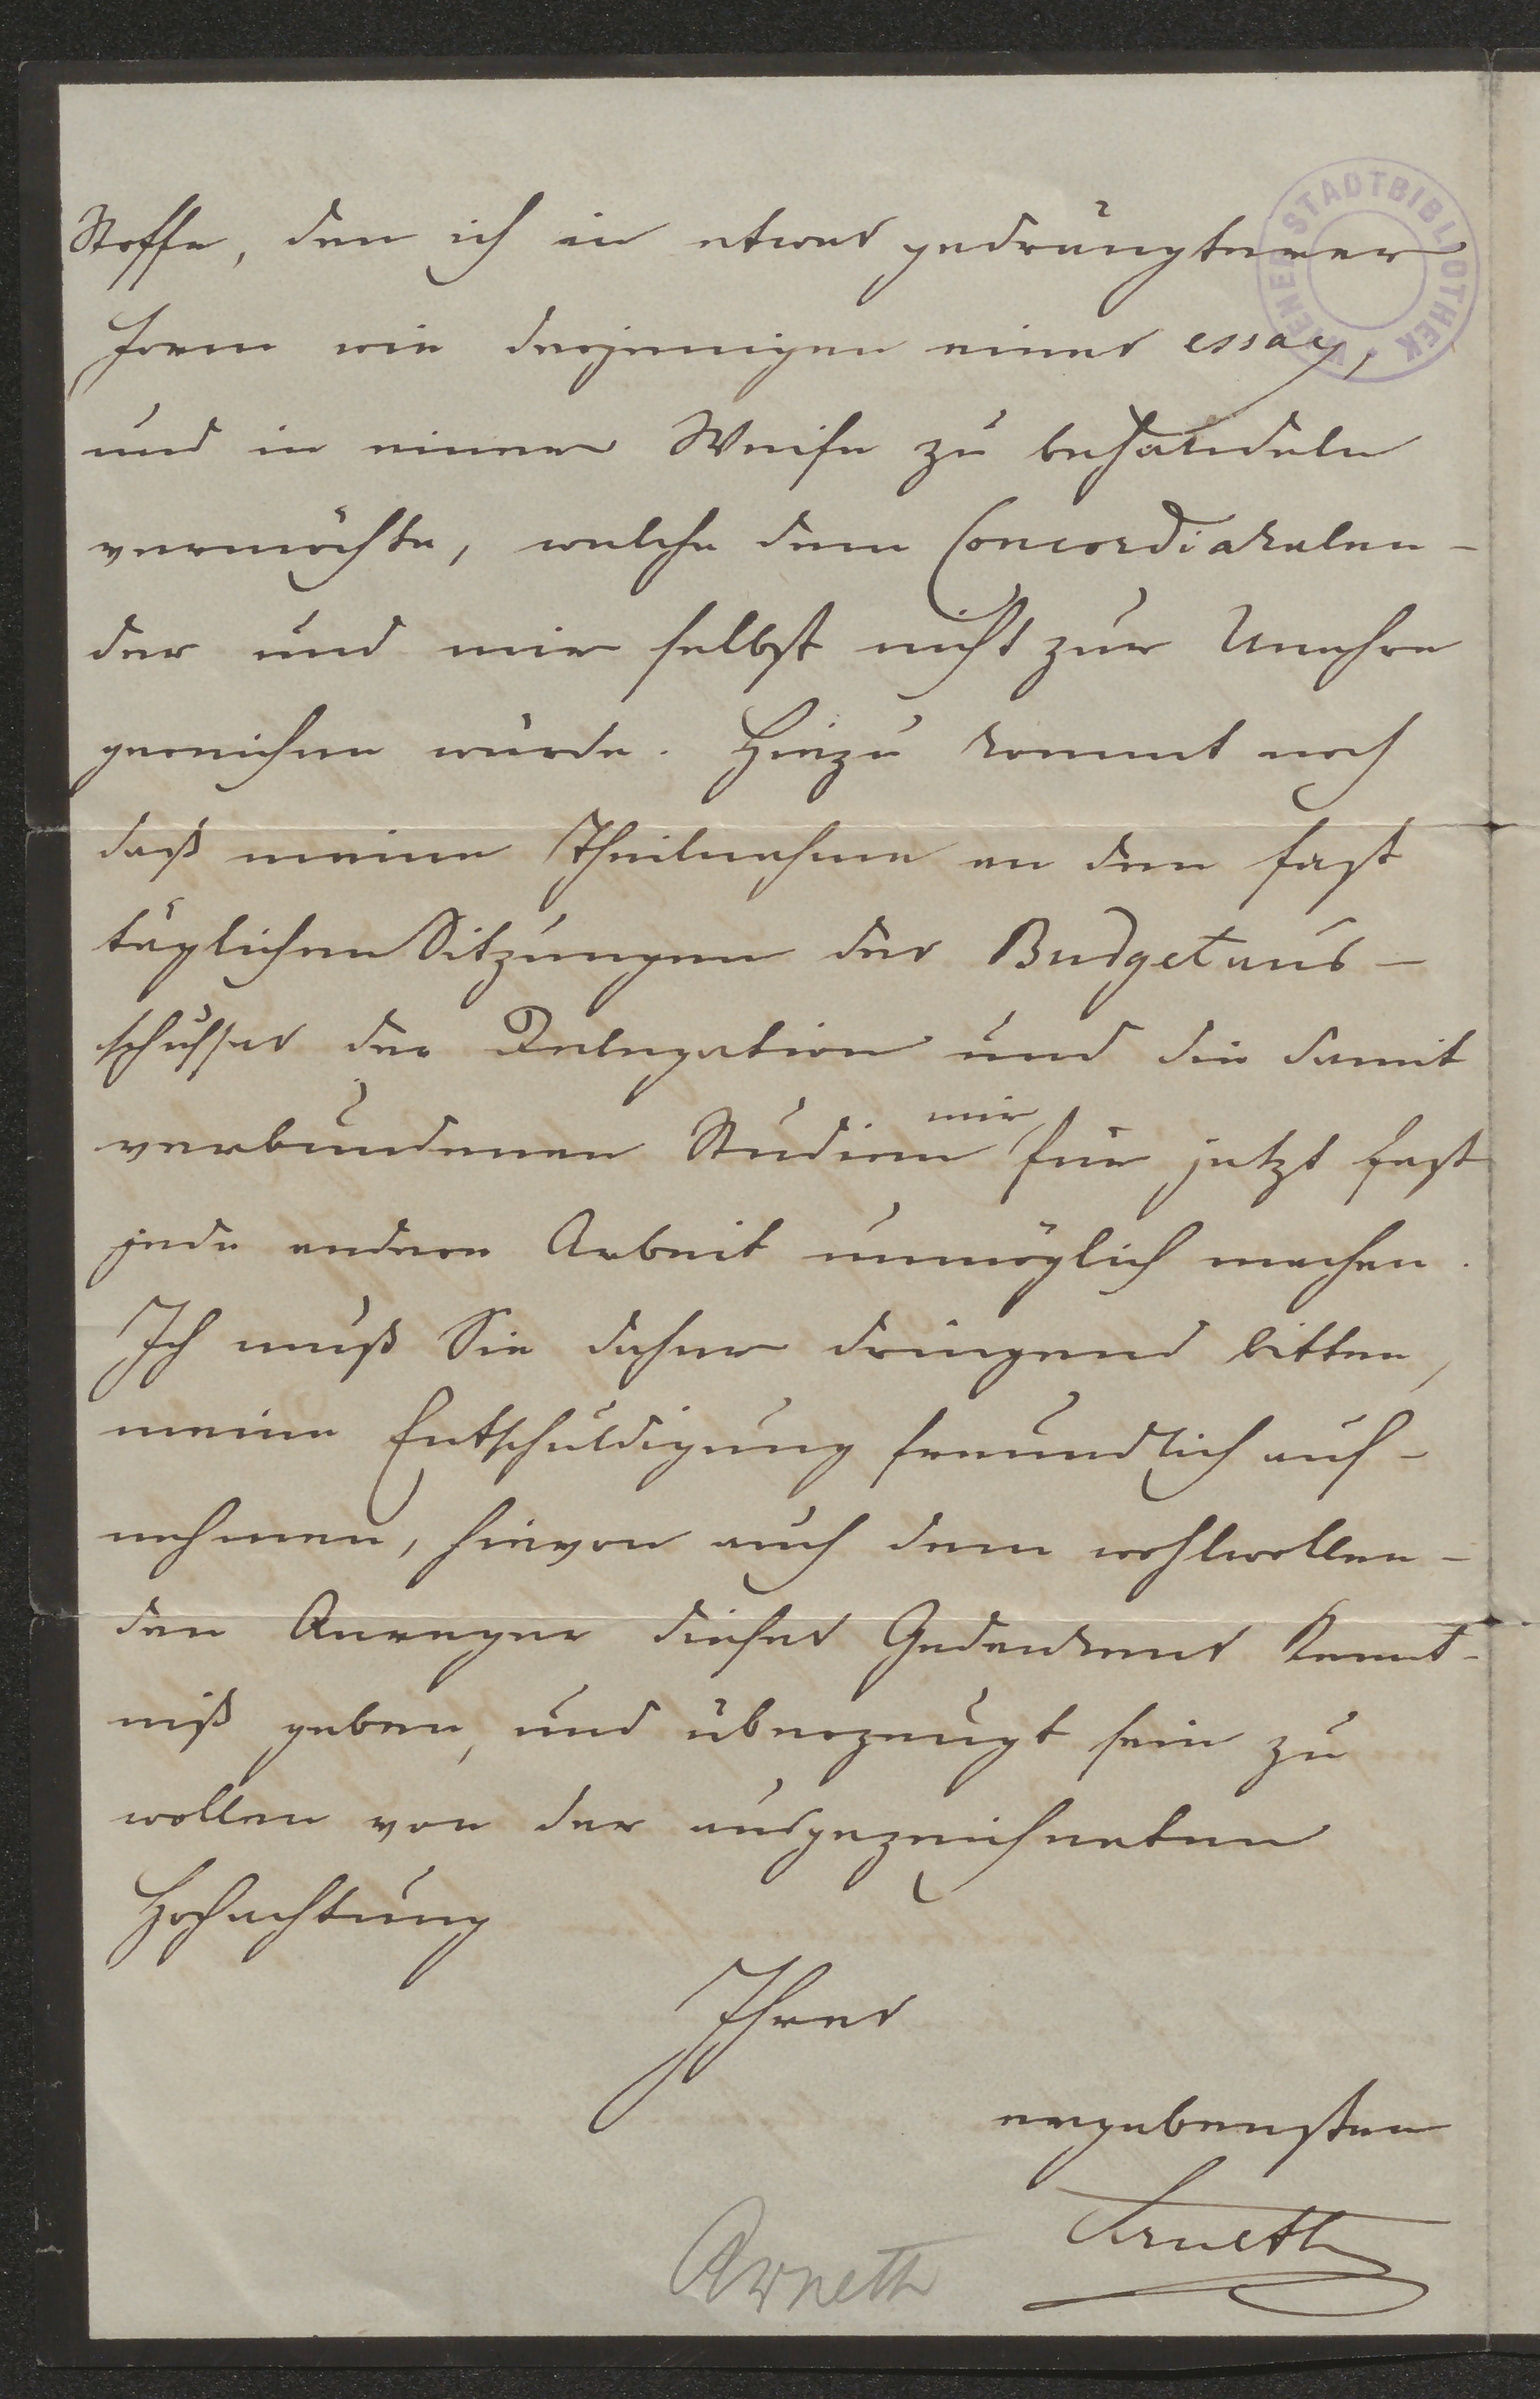 Stoffe, den ich in etwas gedrängterer
Form wie derjenigen eines essay,
und in einer Weise zu behandeln
vermöchte, welche dem Concordiakalen-
der und mir selbst nicht zur Unehre
gereichen würde. Hiezu kommt noch
daß meine Theilnahme an den fast
täglichen Sitzungen des Budgetaus-
schusses der Delegation und die damit
verbundenen Studien mir für jetzt fast
jede andere Arbeit unmöglich machen.
Ich muß Sie daher dringend bitten,
meine Entschuldigung freundlich auf-
nehmen, hievon auch dem wohlwollen-
den Anreger dieses Gedankens Kennt-
niß geben, und überzeugt sein zu
wollen von der ausgezeichneten
Hochachtung
Ihres
ergebensten
Arneth
Arneth
WIENER STADTBIBLIOTHEK